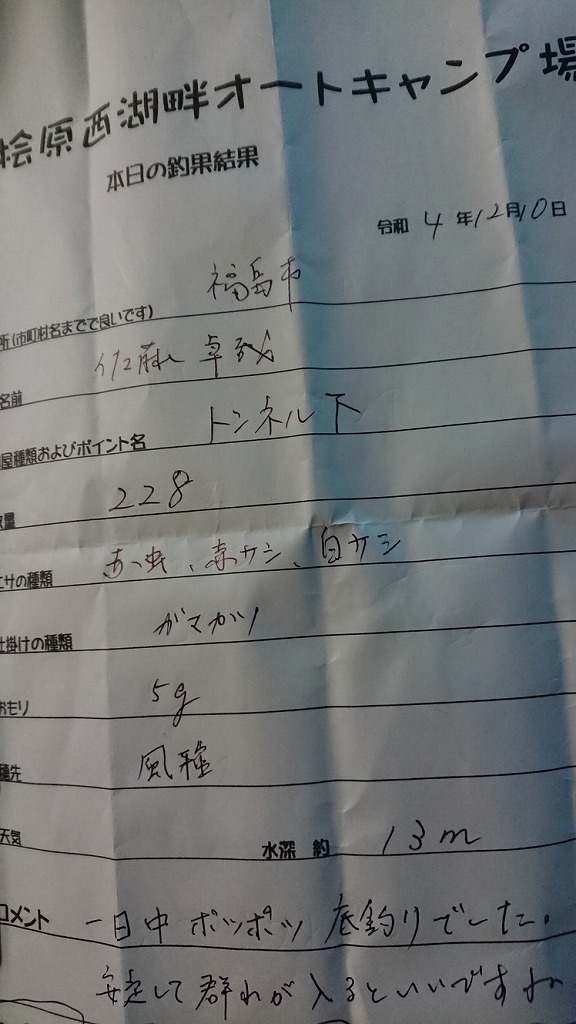 桧原西湖畔オートキャンプ場
本日の釣果結果
令和 4 年 12月10日
所(市町村名までで良いです) 福島市
名前 佐藤 卓
屋種類およびポイント名 トンネル下
数量 228
エサの種類 赤虫、赤サシ、白サシ
仕掛けの種類 がまかつ
おもり 5g
穂先 風穂
天気 水深 約 13m
コメント 一日中 ポツポツ 底釣りでした。
安定して群れが入るといいですね